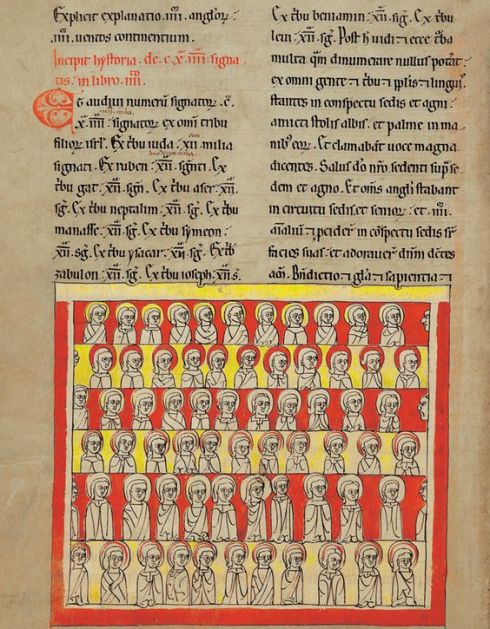 Explicit explanatio .iiii. anglor̄.
.iiii. uentos continentium.
Incipit hystoria. de. c. x̄l. iiii. signa
tis. in libro. iiii͞to
Et audiui numerū signator̄. c̄.
iiii. milia.
x̄l. iiii. signator̄ ex omi tribu
filior̄ isrl̄. Ex t̄bu iuda .xii. milia
signati. Ex ruben .xii. sign̄ti. Ex
t̄bu gat .xii. sgn̄. Ex t̄bu aser .xii.
sḡ. Ex t̄bu neptalim .xii. sḡ. Ex t̄bu
manasse .xii. sḡ. Ex t̄bu symeon .
xii. sḡ. Ex t̄bu ysacar .xii. sḡ. Ex t̄b
zabulon .xii. sḡ. Ex t̄bu ioseph .xii. s.
Ex t̄bu beniamin .xii. sḡ. Ex t̄bu
leui .xii. sḡ. Post h̄ uidi ⁊ ecce t̄ba
multa qm̄ dinumerare nullus pot̄at.
ex omni gente ⁊ t̄bu ⁊ pp̄lis ⁊ linguis
stantes in conspectu sedis et agni
amicti stolis albis. et palme in ma
nib; eor̄. Et clamabat uoce magna
dicentes. Salus dō nr̄o. sedenti sup̄ se
dem et agno. Et om̄s angli stabant
in circuitu sedis. et senior̄. et .iiii.
aīaliū ⁊ cecider̄ in cōspectu sedis sr̄
facies suas. et adorauer̄ dnm̄. dc̄tes
am̄. Bn̄dictio ⁊ glā ⁊ sapientia ⁊